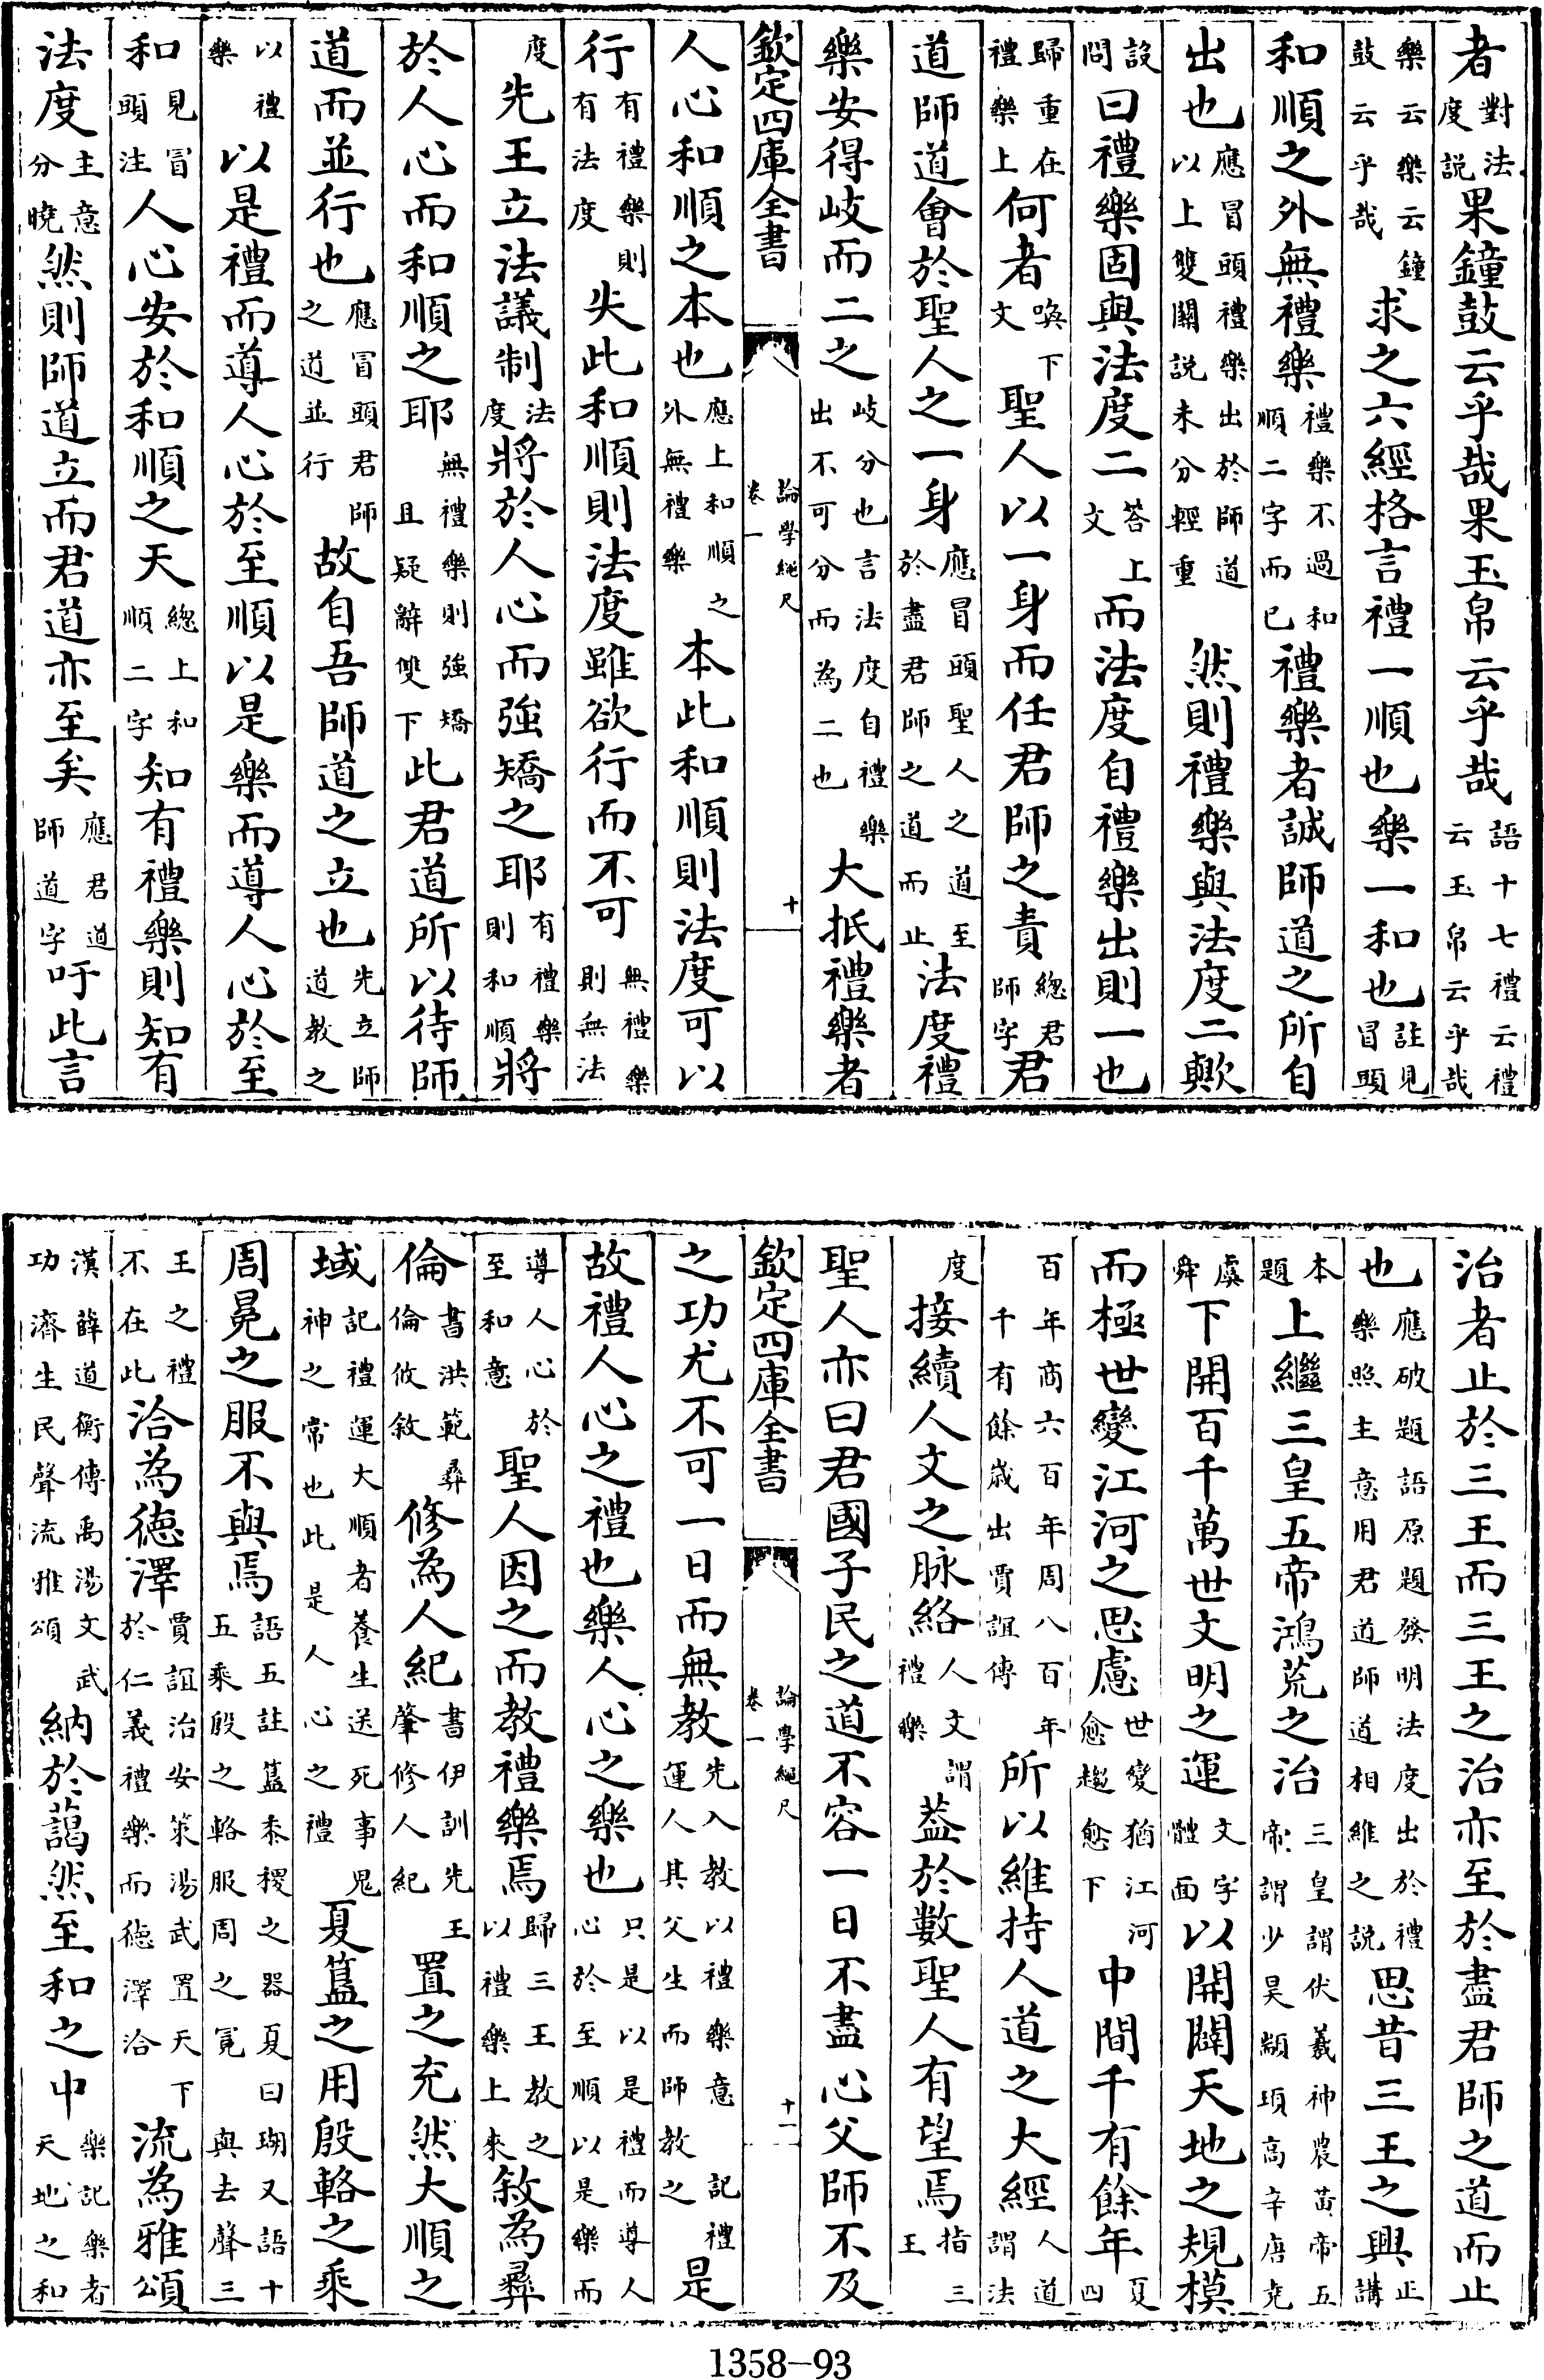 者對法度説果鐘鼓云乎哉果玉帛云乎哉語十七禮云禮云玉帛云乎哉
樂云樂云鐘鼓云乎哉求之六經格言禮一順也樂一和也註見冒頭
和順之外無禮樂禮樂不過和順二字而已禮樂者誠師道之所自
出也應冒頭禮樂出於師道以上雙關説未分輕重然則禮樂與法度二歟
設問曰禮樂固與法度二答上文而法度自禮樂出則一也
歸重在禮樂上何者喚下文聖人以一身而任君師之責總君師字君
道師道會於聖人之一身應冒頭聖人之道至於盡君師之道而止法度禮
樂安得岐而二之岐分也言法度自禮樂出不可分而為二也大抵禮樂者
欽定四庫全書 論學繩尺 卷一 十
人心和順之本也應上和順之外無禮樂本此和順則法度可以
行有禮樂則有法度失此和順則法度雖欲行而不可無禮樂則無法
度先王立法議制法度將於人心而強矯之耶有禮樂則和順將
於人心而和順之耶無禮樂則強矯且疑辭雙下此君道所以待師
道而並行也應冒頭君師之道並行故自吾師道之立也先立師道教之
以禮樂以是禮而導人心於至順以是樂而導人心於至
和見冒頭注人心安於和順之天總上和順二字知有禮樂則知有
法度主意分曉然則師道立而君道亦至矣應君道師道字吁此言
治者止於三王而三王之治亦至於盡君師之道而止
也應破題語原題發明法度出於禮樂照主意用君道師道相維之説思昔三王之興正講
本題上繼三皇五帝鴻荒之治三皇謂伏羲神農黃帝五帝謂少昊顓頊高辛唐堯
虞舜下開百千萬世文明之運文字體面以開闢天地之規模
而極世變江河之思慮世變猶江河愈趨愈下中間千有餘年夏四
百年商六百年周八百年千有餘歲出賈誼傳所以維持人道之大經人道謂法
度接續人文之脉絡人文謂禮樂葢於數聖人有望焉指三王
聖人亦曰君國子民之道不容一日不盡心父師不及
欽定四庫全書 論學繩尺 卷一 十一
之功尤不可一日而無教先入教以禮樂意記禮運人其父生而師教之是
故禮人心之禮也樂人心之樂也只是以是禮而導人心於至順以是樂而
導人心於至和意聖人因之而教禮樂焉歸三王教之以禮樂上來敘為彞
倫書洪範彞倫攸敘修為人紀書伊訓先王肇修人紀置之充然大順之
域記禮運大順者養生送死事鬼神之常也此是人心之禮夏簋之用殷輅之乘
周冕之服不與焉語五註簋黍稷之器夏曰瑚又語十五乘殷之輅服周之冕與去聲三
王之禮不在此洽為德澤賈誼治安策湯武置天下於仁義禮樂而德澤洽流為雅頌
漢薛道衡傳禹湯文武功濟生民聲流雅頌納於藹然至和之中樂記樂者天地之和
1358-93